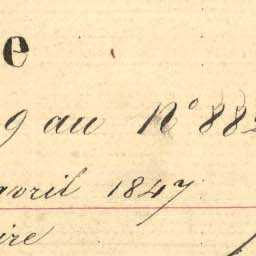 e
9 au N° 889
avril 1847
ire